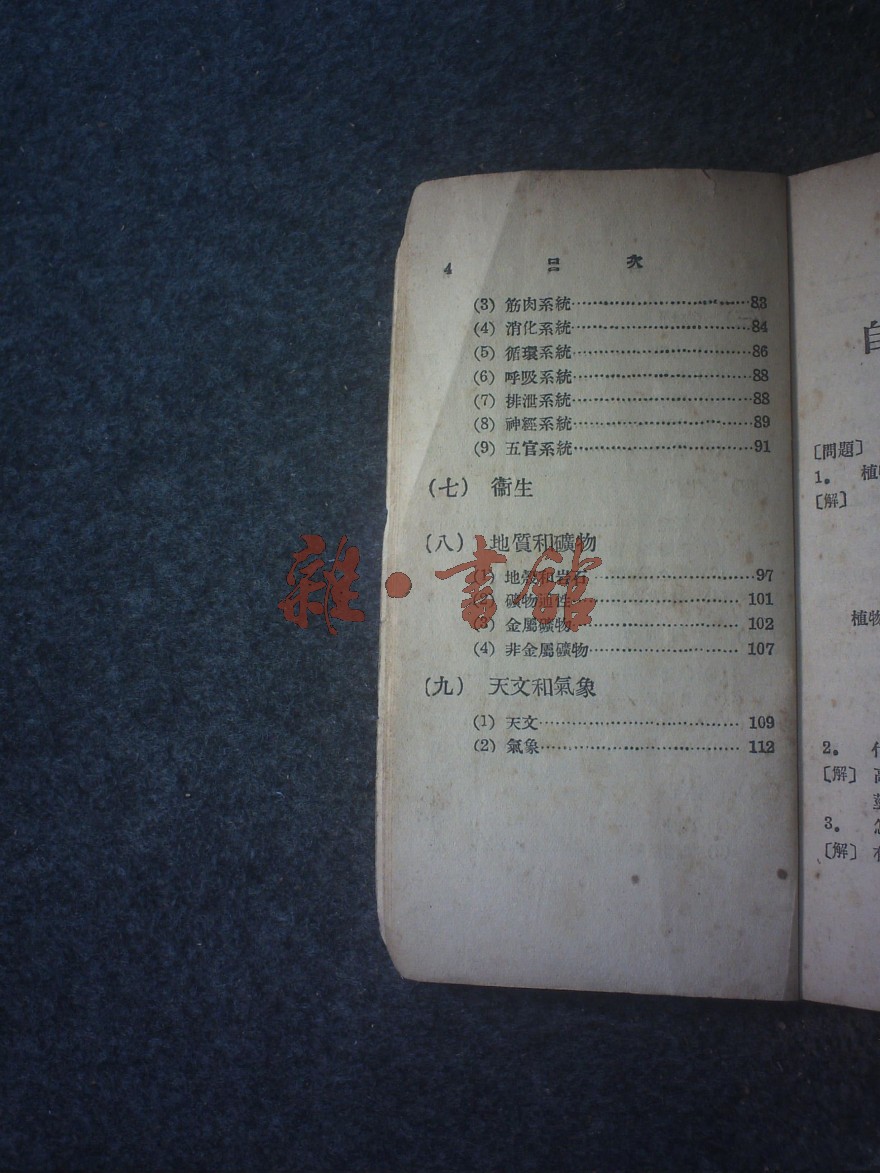 4 目 次
(3) 筋肉系統…83
(4) 消化系統…84
(5) 循環系統…86
(6) 呼吸系統…88
(7) 排泄系統…88
(8) 神經系統…89
(9) 五官系統…91
(七) 衞生
(八) 地質和礦物
(1) 地殼和岩石…97
(2) 礦物通性…101
(3) 金屬礦物…102
(4) 非金屬礦物…107
(九) 天文和氣象
(1) 天文…109
(2) 氣象…112
雜·書館
自
[問題]
1. 植
[解]
植物
2.
[解]
3.
[解]